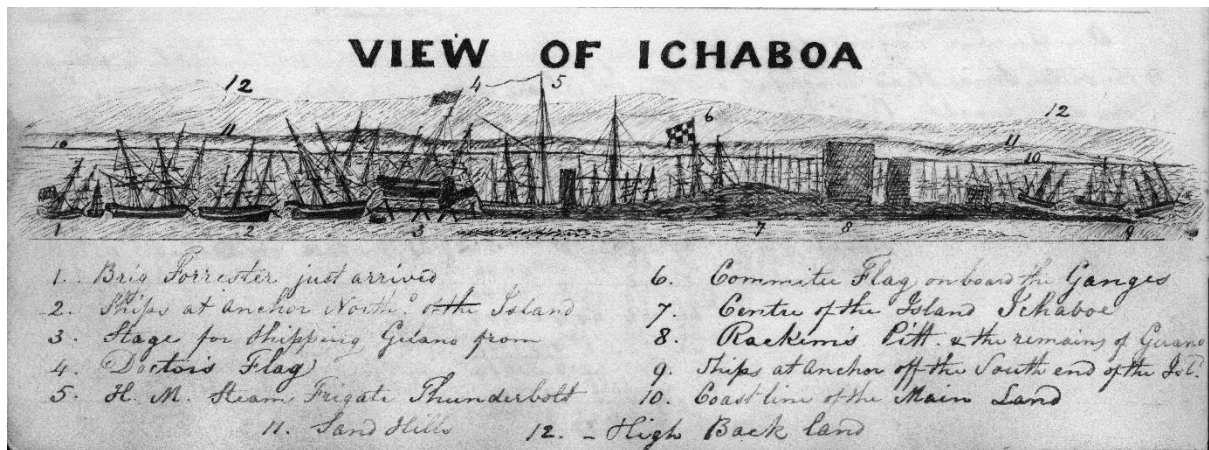 VIEW OF ICHABOA
12 4 5 6 12
10 11 11 10
1 2 3 7 8 9
1. Brig Forrester just arrived
2. Ships at Anchor North.d of the Island
3. Stage for Shipping Guano from
4. Doctors Flag
5. H. M. Steam Frigate Thunderbolt
6. Commitee Flag on board the Ganges
7. Centre of the Island Ichaboe
8. Pitt. & the remains of Guano
9. Ships at Anchor off the South end of the Isl.d
10. Coast line of the Main Land
11. Sand Hills 12. - High Back land